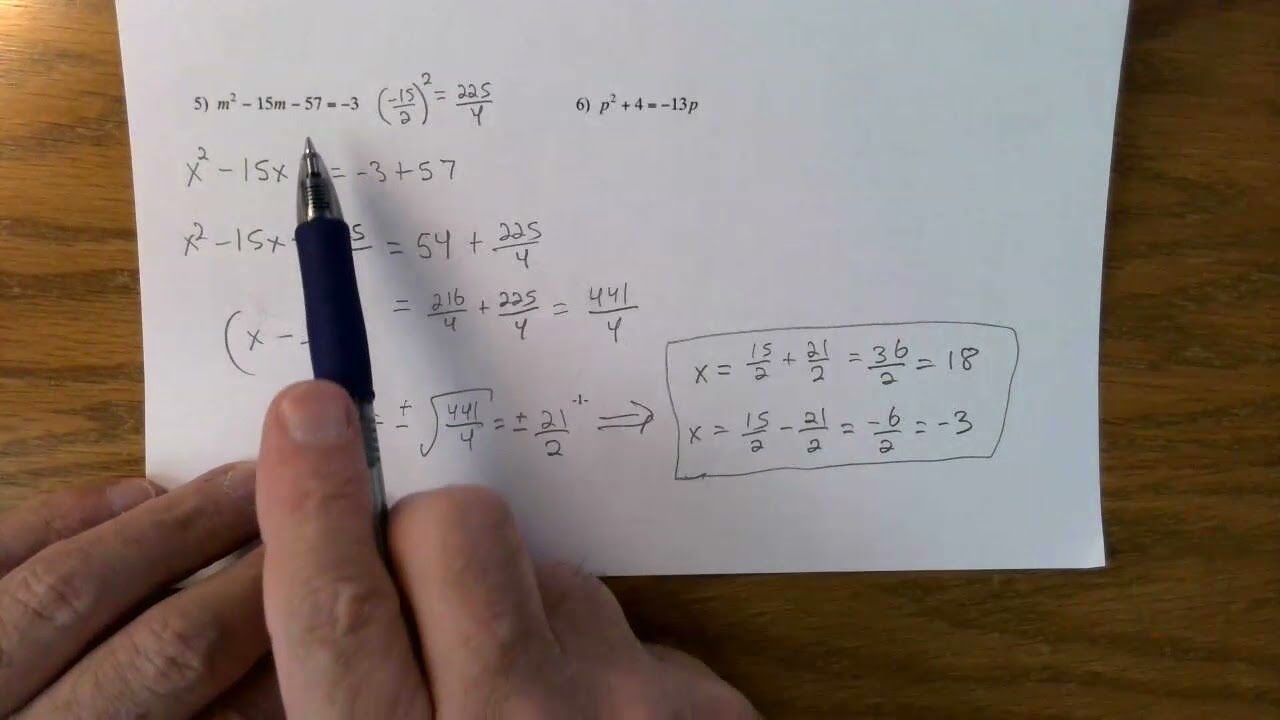 5) m² − 15m − 57 = −3 (-15/2)² = 225/4
6) p² + 4 = −13p
x² − 15x = -3 + 57
x² − 15x = 54 + 225/4
= 216/4 + 225/4 = 441/4
(x −
= ± √(441/4) = ± 21/2 ⇒
x = 15/2 + 21/2 = 36/2 = 18
x = 15/2 − 21/2 = -6/2 = -3